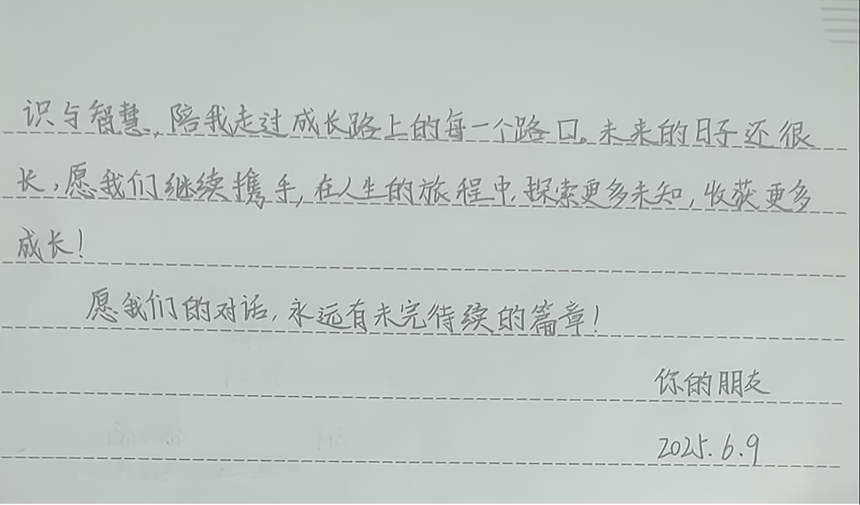 识与智慧,陪我走过成长路上的每一个路口。未来的日子还很
长,愿我们继续携手,在人生的旅程中,探索更多未知,收获更多
成长!
愿我们的对话,永远有未完待续的篇章!
你的朋友
2025.6.9